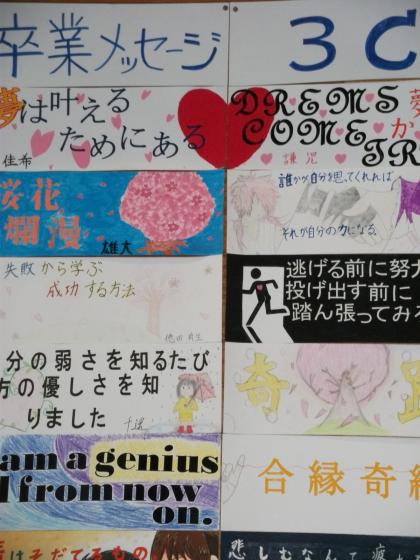 卒業メッセージ
3C
夢は叶える
ためにある
佳希
DREMS
COME
TR
夢
か
謙児
桜花
爛漫
雄大
誰かが自分を思ってくれれば
それが自分の力になる
失敗から学ぶ
成功する方法
逃げる前に努力
投げ出す前に
踏ん張ってみる
分の弱さを知るたび
方の優しさを知
りました
奇跡
am a genius
I from now
on.
合縁奇縁
はそだてるもの
悲しむなんて疲